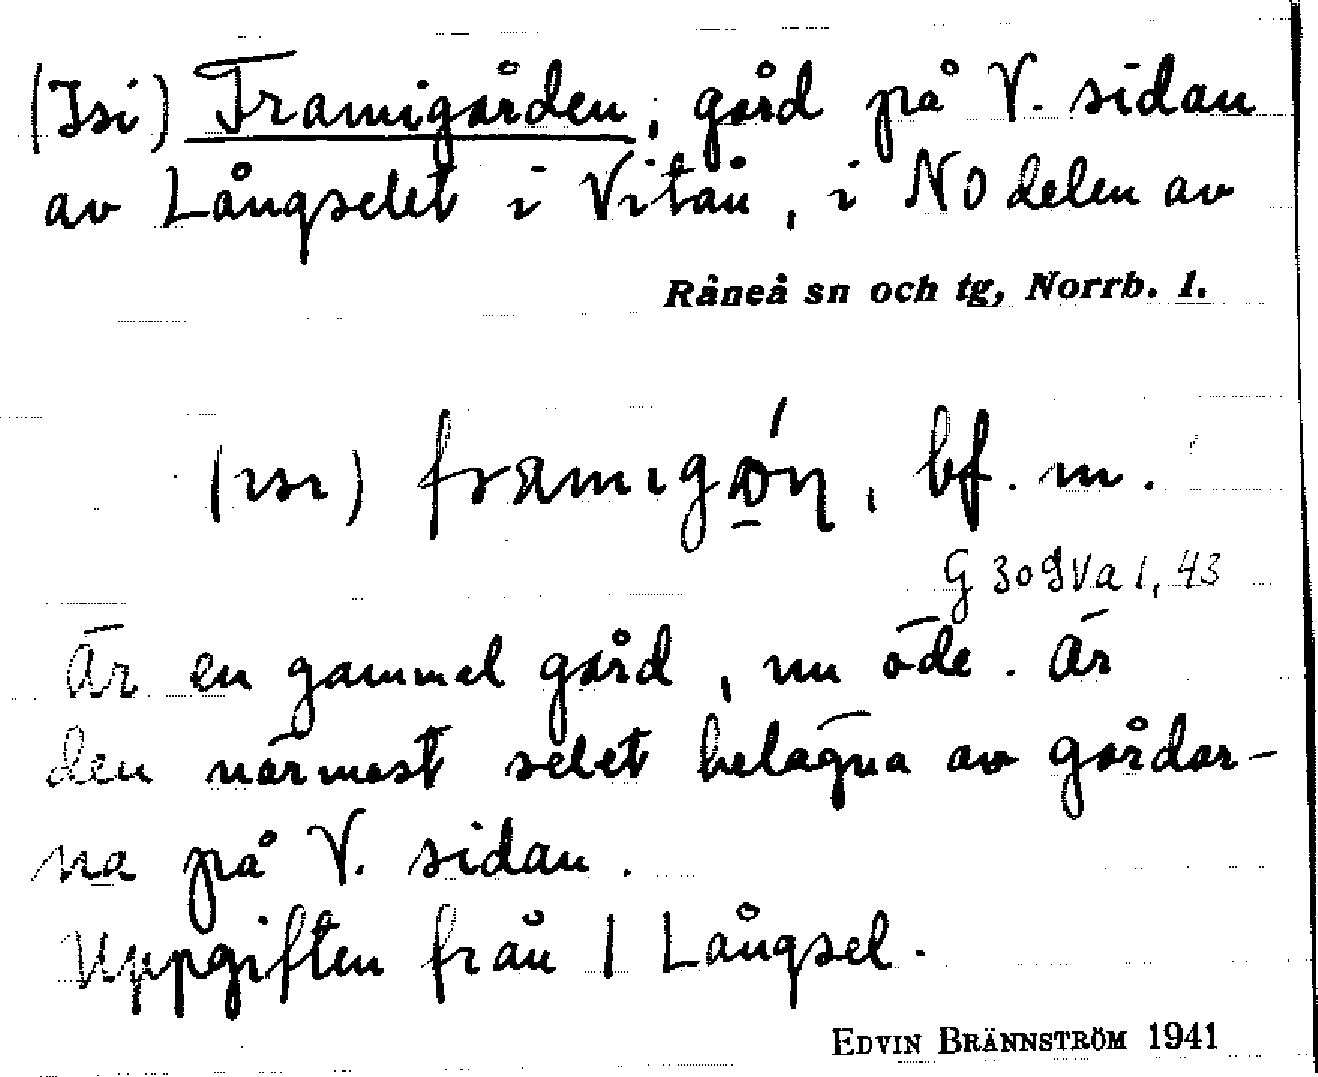 (Isi) Framigården, gård på V. sidan
av Långselet i Vitån, i NO delen av
Råneå sn och tg, Norrb. l.
(ısı) framıgǫ́ɳ, bf. m.
G 309Va 1, 43
Är en gammal gård, nu öde. Är
den närmast selet belägna av gårdar-
na på V. sidan.
Uppgiften från 1 Långsel.
EDVIN BRÄNNSTRÖM 1941